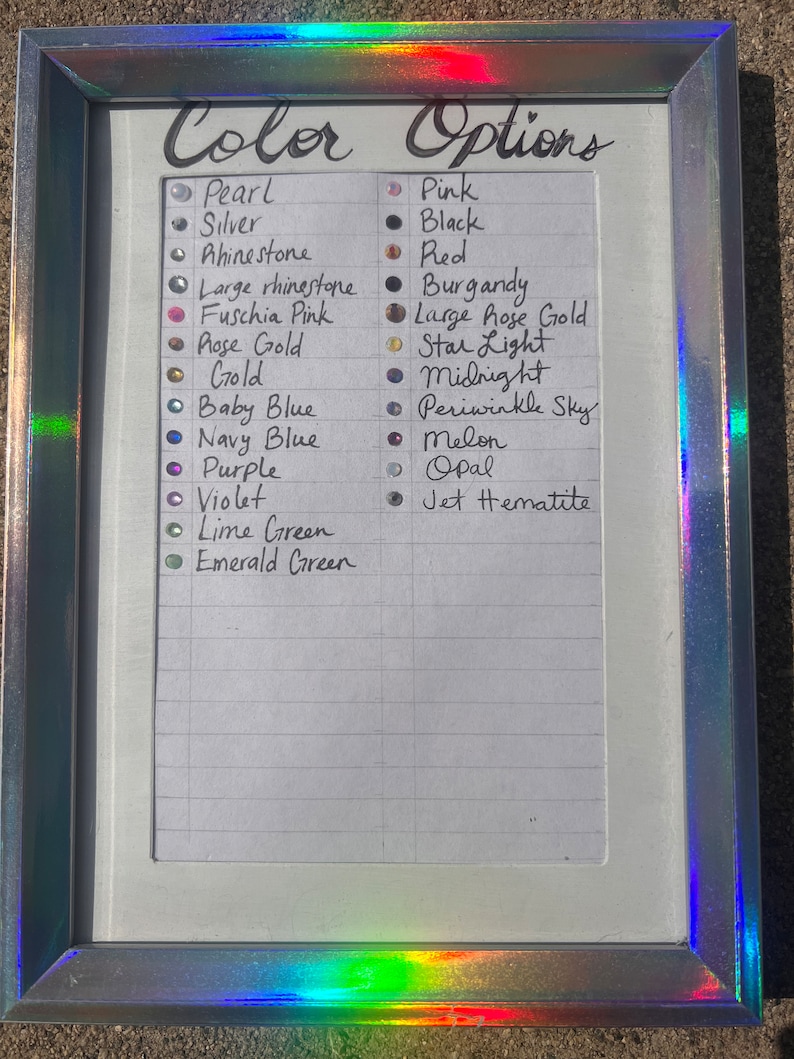 Color Options
Pearl
Silver
Rhinestone
Large rhinestone
Fuschia Pink
Rose Gold
Gold
Baby Blue
Navy Blue
Purple
Violet
Lime Green
Emerald Green
Pink
Black
Red
Burgandy
Large Rose Gold
Star Light
Midnight
Periwinkle Sky
Melon
Opal
Jet Hematite